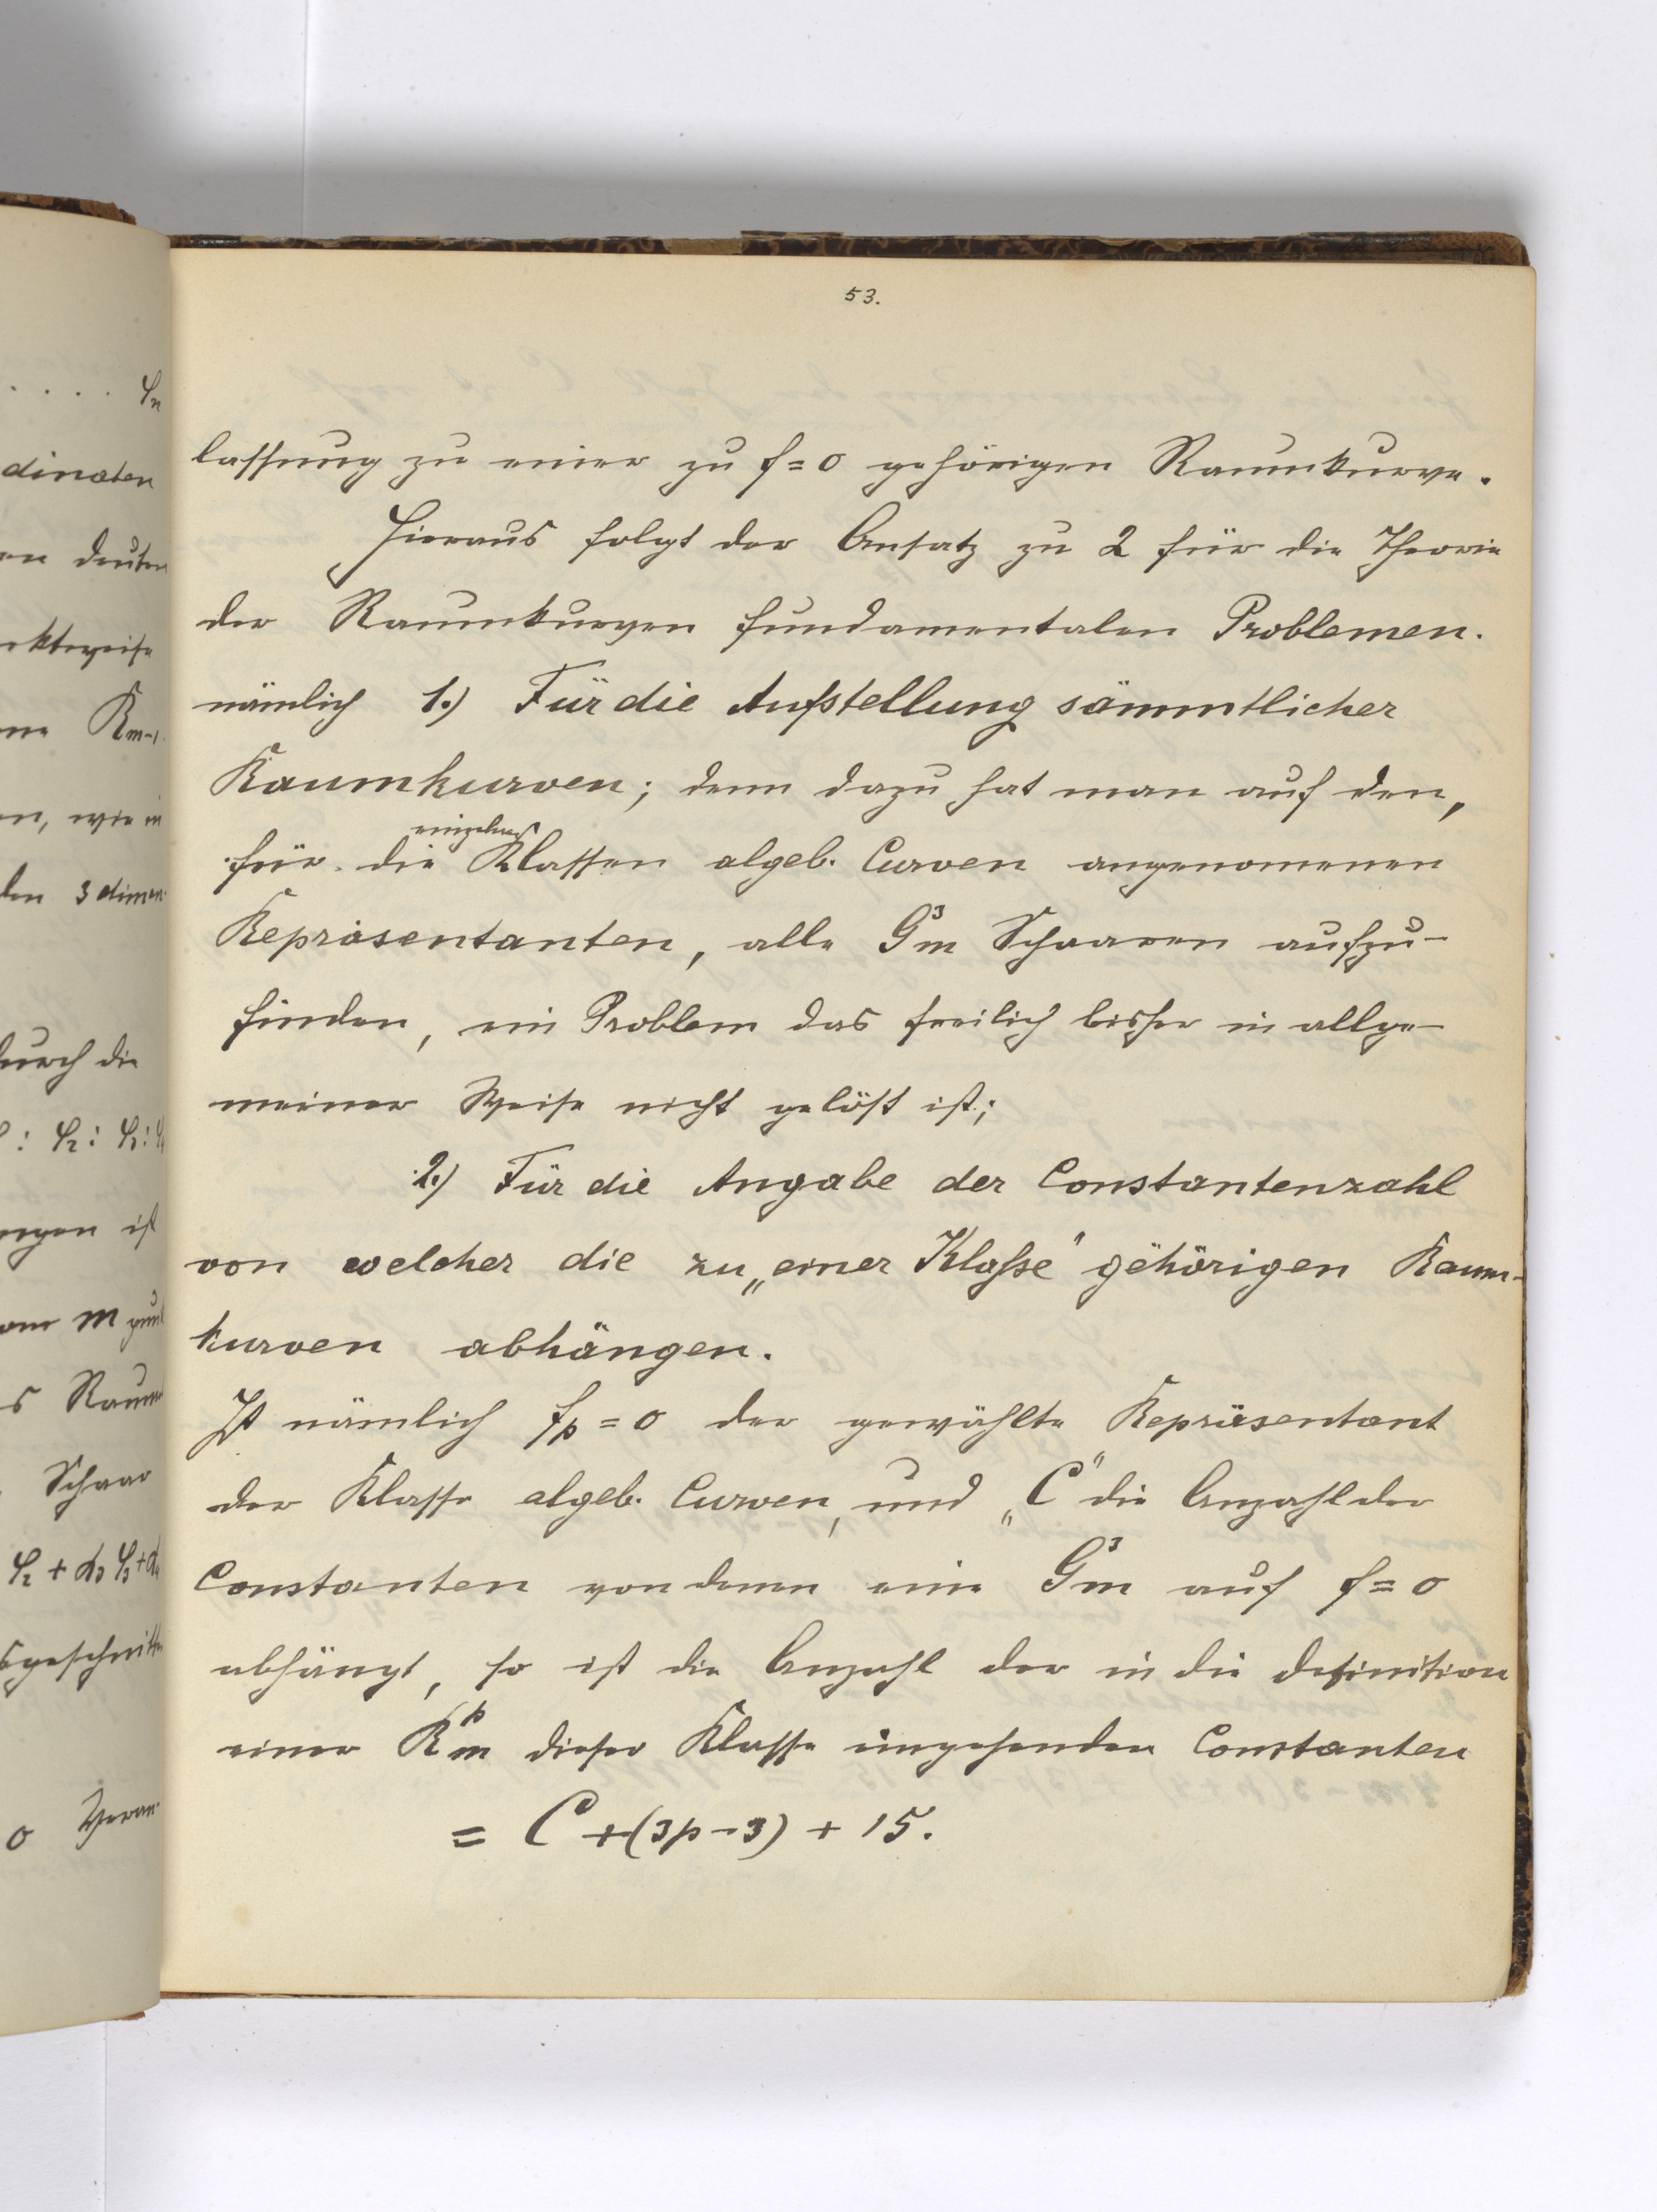 53.
lassung zu einer zu f=0 gehörigen Raumkurve.
Hieraus folgt der Ansatz zu 2 für die Theorie
der Raumkurven fundamentalen Problemen.
nämlich 1.) Für die Aufstellung sämmtlicher
Raumkurven; denn dazu hat man auf den,
für die einzelnen Klassen algeb. Curven angenomenen
Repräsentanten, alle G³m Schaaren aufzu-
finden, ein Problem das freilich bisher in allge-
meiner Weise nicht gelöst ist;
2.) Für die Angabe der Constantenzahl
von welcher die zu „einer Klaſse" gehörigen Raum-
kurven abhängen.
Ist nämlich fp=0 der gewählte Repräsentant
der Klasse algeb. Curven, und „C" die Anzahl der
Constanten von denen eine G³m auf f=0
abhängt, so ist die Anzahl der in die Definition
einer Rᵖm dieser Klasse eingehenden Constanten
= C+(3p-3) + 15.
dinaten
deuten
Rm-1.
wie in
3 dimen
durch die
ist
m
Raum
Schaar